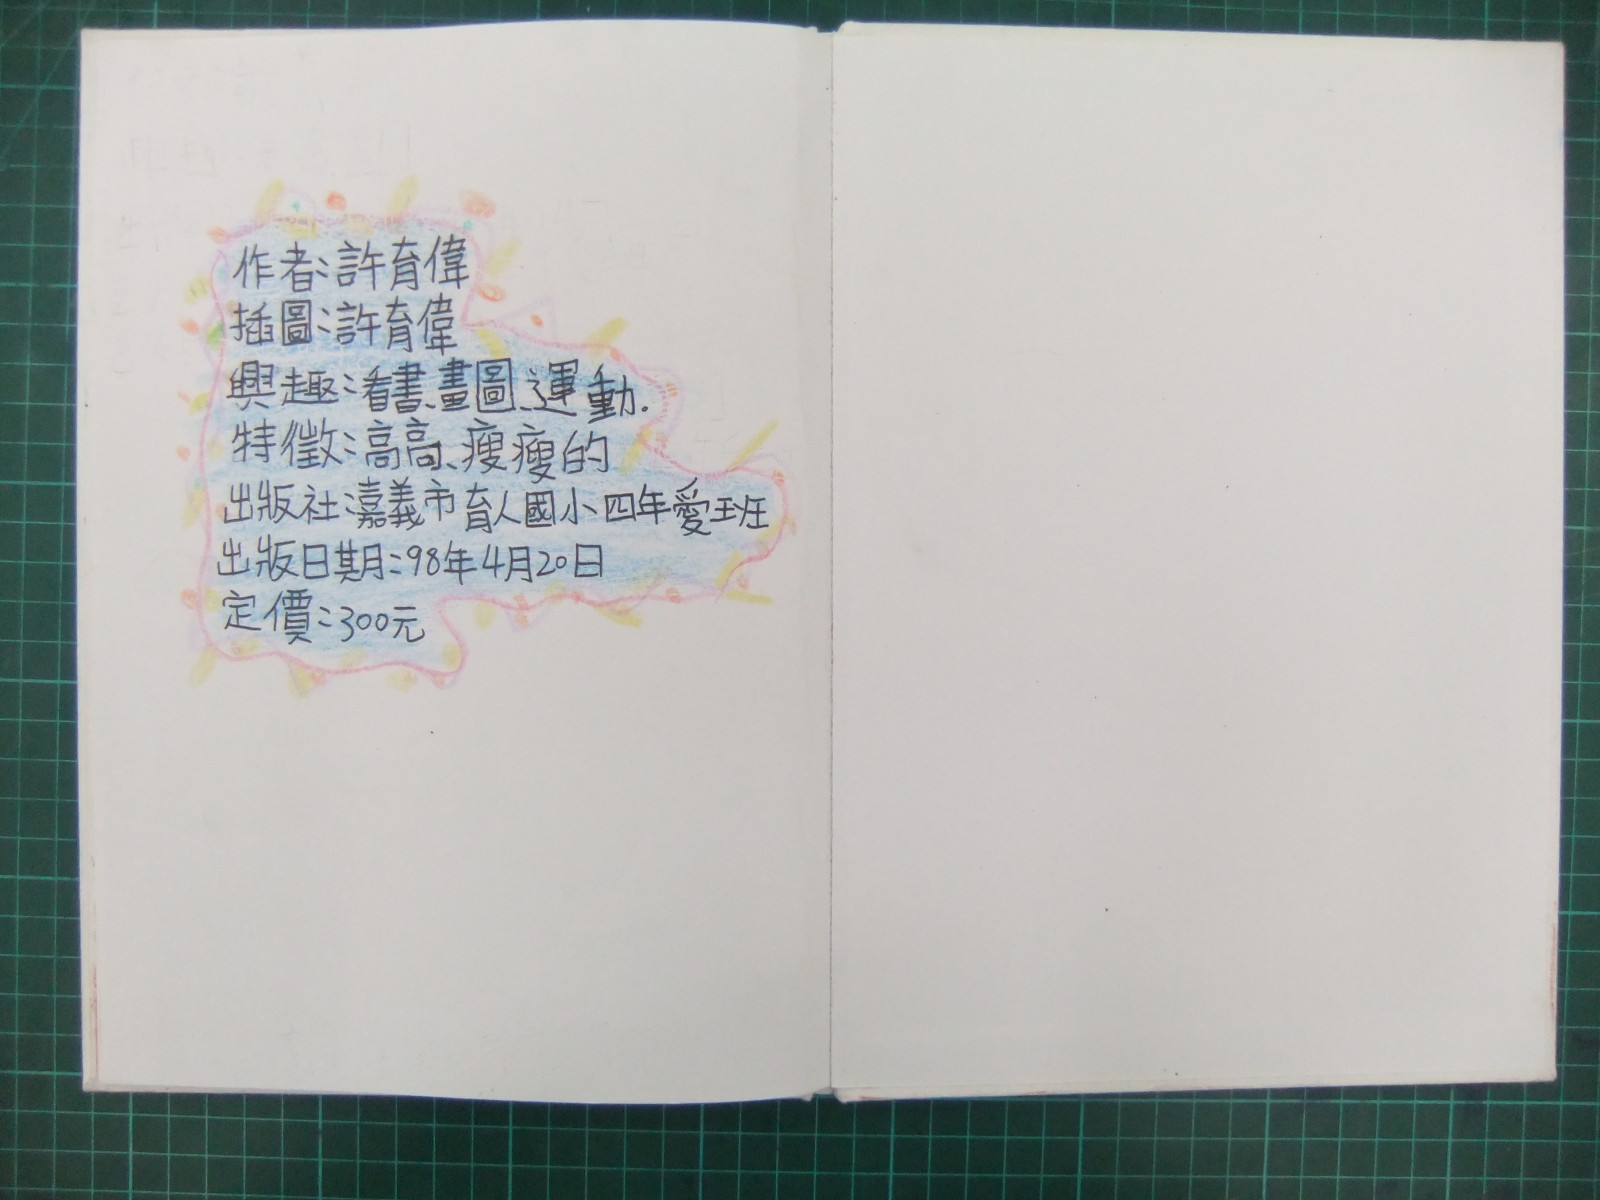 作者:許育偉
插圖:許育偉
興趣:看書、畫圖、運動.
特徵:高高、瘦瘦的
出版社:嘉義市育人國小四年愛班
出版日期:98年4月20日
定價:300元